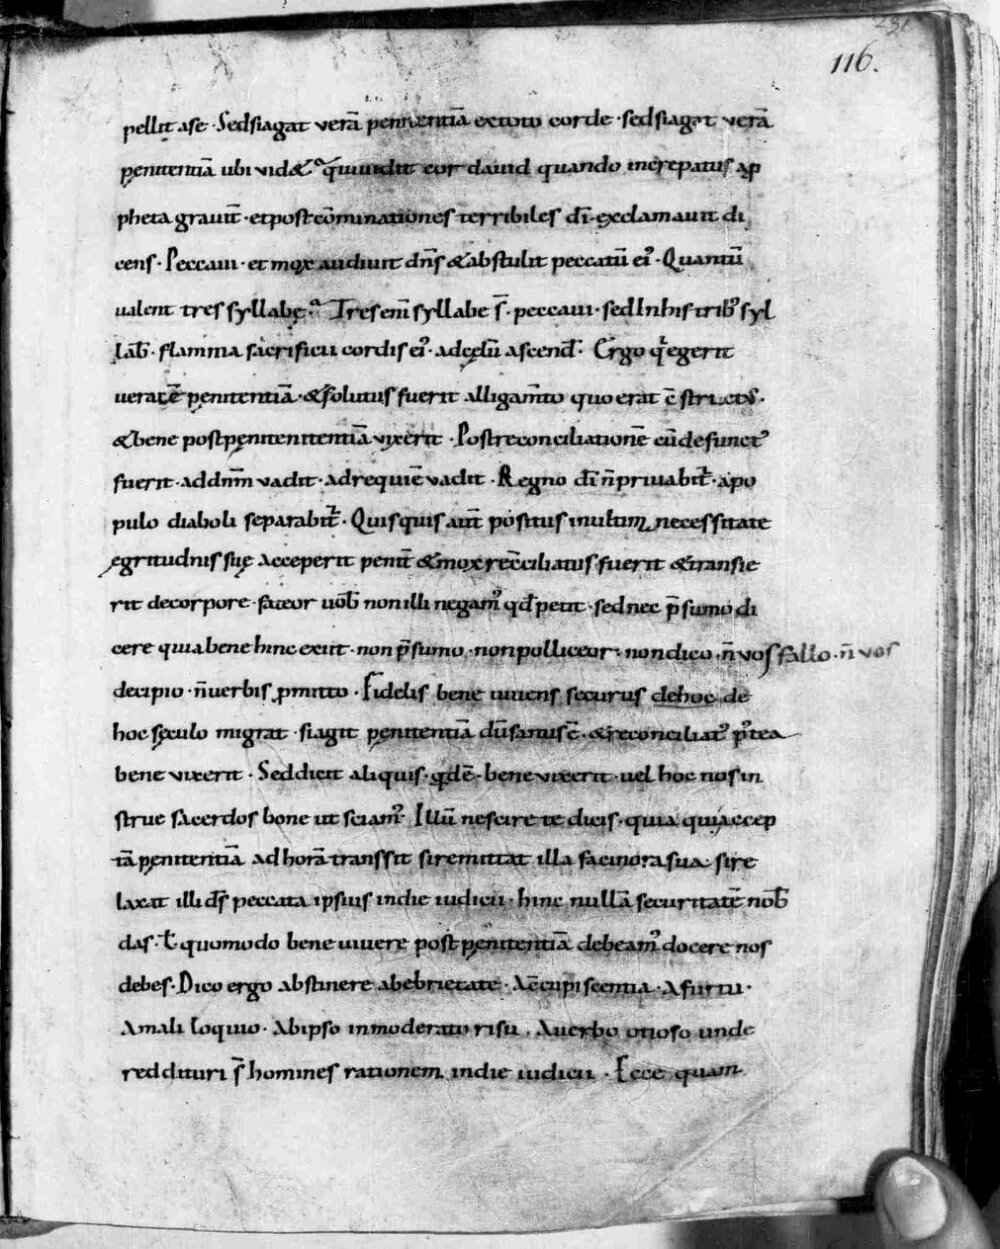 116.
pellit ase · Sed si agat verā penitentiā extoto corde · sed si agat verā
penitentiā ubi vid& qui vidit cor dauid quando increpatus a ꝓ
pheta grauit̄ · et post cōminationes terribiles dī · exclamauit di
cens · Peccaui · et mox audiuit dn̄s & abstulit peccatū ei᾽ · Quantū
ualent tres syllabę · Tres enī syllabe s̄ · peccaui · sed In his trib᾽ syl
lab̄ · flamma sacrificii cordis ei᾽ · ad cęlū ascend̄ · Ergo q̄ egerit
ueracē penitentiā · & solutus fuerit alligam̄to quo erat c̄strict᾽ ·
& bene post penitenitentiā vixerit · Post reconciliationē cū defunct᾽
fuerit · ad dn̄m vadit · ad requiē vadit · Regno dī n̄ priuabit̄ · a po
pulo diaboli separabit̄ · Quisquis aut̄ positus in ultima necessitate
egritudnis suę acceperit penit̄ & mox rec̄ciliatus fuerit & transie
rit de corpore · fateor uob̄ non illi negam᾽ qd̄ petit · sed nec p̄sumo di
cere quia bene hinc exiit · non p̄sumo · non polliceor · non dico · n̄ vos fallo · n̄ vos
decipio · n̄ verbis ꝓmitto · Fidelis bene uiuens securus de hoc de
hoc sęculo migrat · si agit penitentiā dū sanus ē · & reconciliat᾽ p᾽tea
bene vixerit · Sed dicit aliquis · qd̄ ē · bene vixerit · uel hoc nos in
strue sacerdos bone ut sciam᾽ · Illū nescire te dicis · quia qui accep
tā penitentiā ad horā transsit si remittat illa facinora sua · si re
laxat illi ds̄ peccata ipsius in die iudicii · hinc nullā securitatē nob̄
das · ł quomodo bene uiuere post penitentiā debeam᾽ docere nos
debes · Dico ergo abstinere ab ebrietate · A c̄cupiscentia · A furtu ·
A mali loquio · Ab ipso inmoderato risu · A uerbo otioso unde
reddituri s̄ homines rationem in die iudicii · Ecce quam